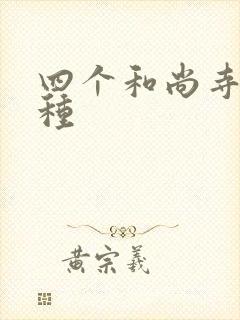 四个和尚寺
種
黄宗羲